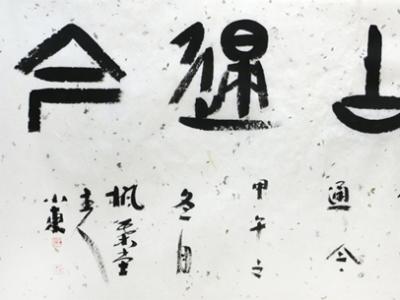 通今
通今
甲午之
冬月
枫栗堂
主人
小東